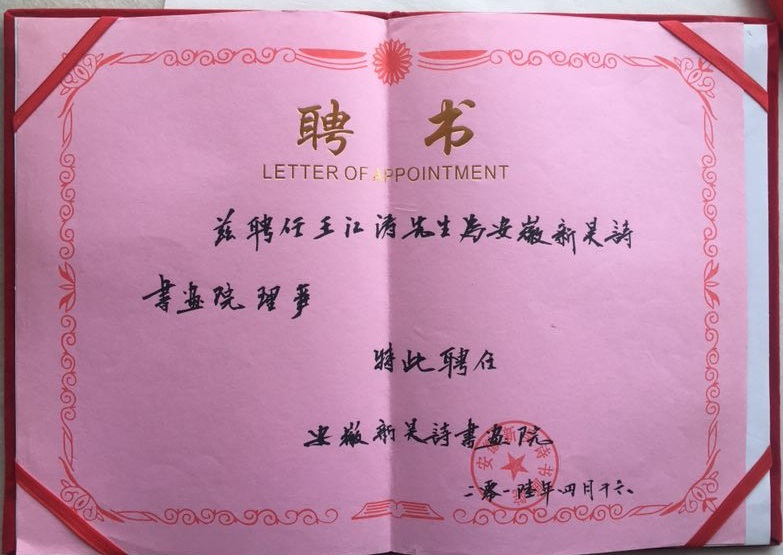 聘 书
LETTER OF APPOINTMENT
兹聘任王江涛先生为安徽新吴詩
書画院理事
特此聘任
安徽新吴詩書画院
二零一陸年四月十六